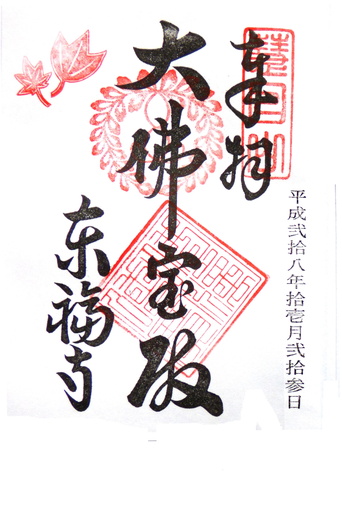 平成弐拾八年拾壱月弐拾参日
奉拝
大佛宝殿
東福寺